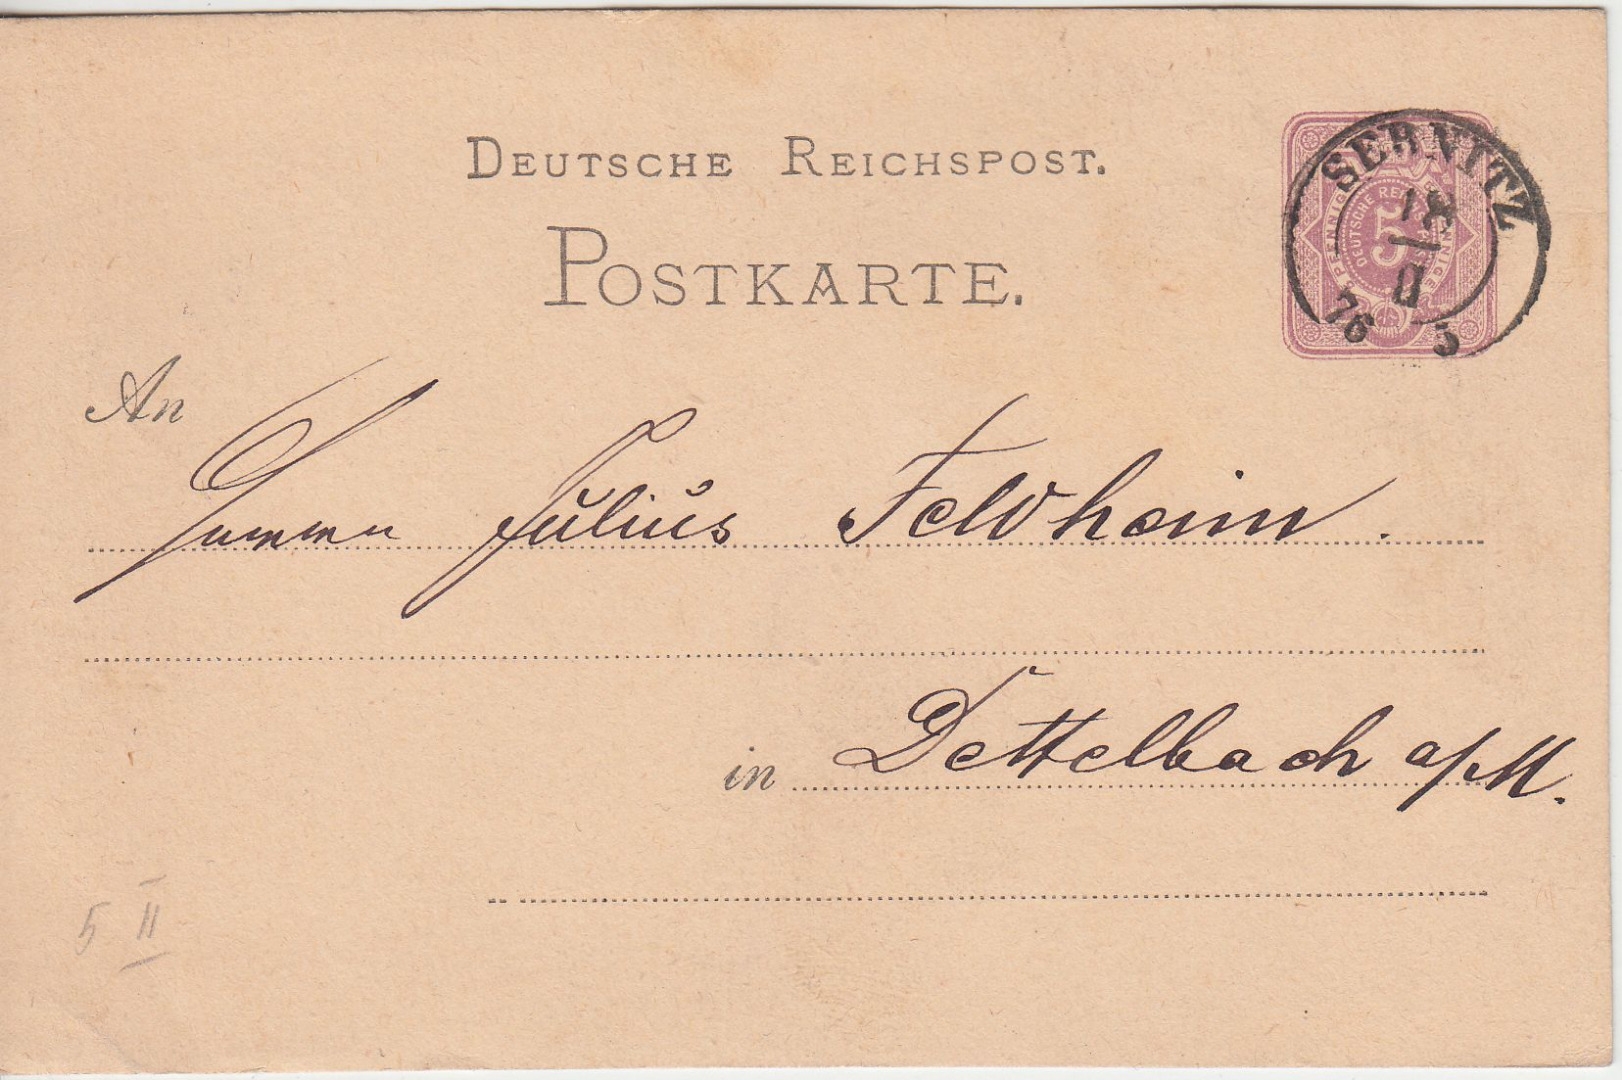 DEUTSCHE REICHSPOST.
POSTKARTE.
5 PFENNIG
DEUTSCHE REICHSPOST
SEBNITZ
18
II
76 5
An
Herrn Julius Feldheim.
in Dettelbach a/M.
5 II